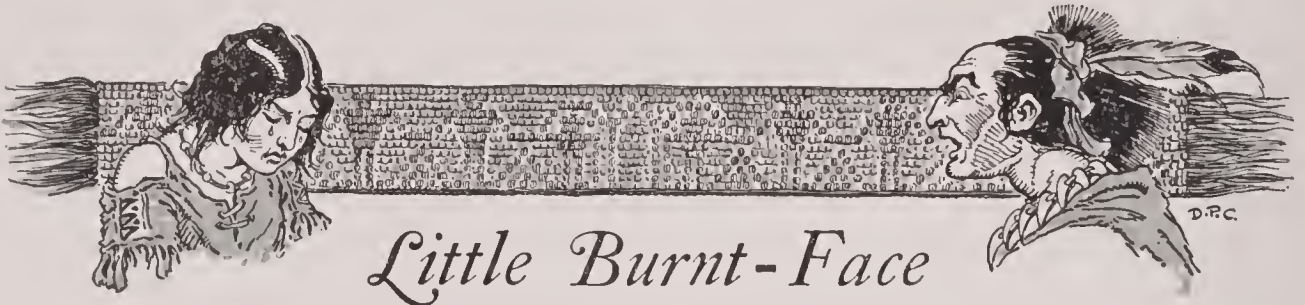 D.P.C.
Little Burnt-Face